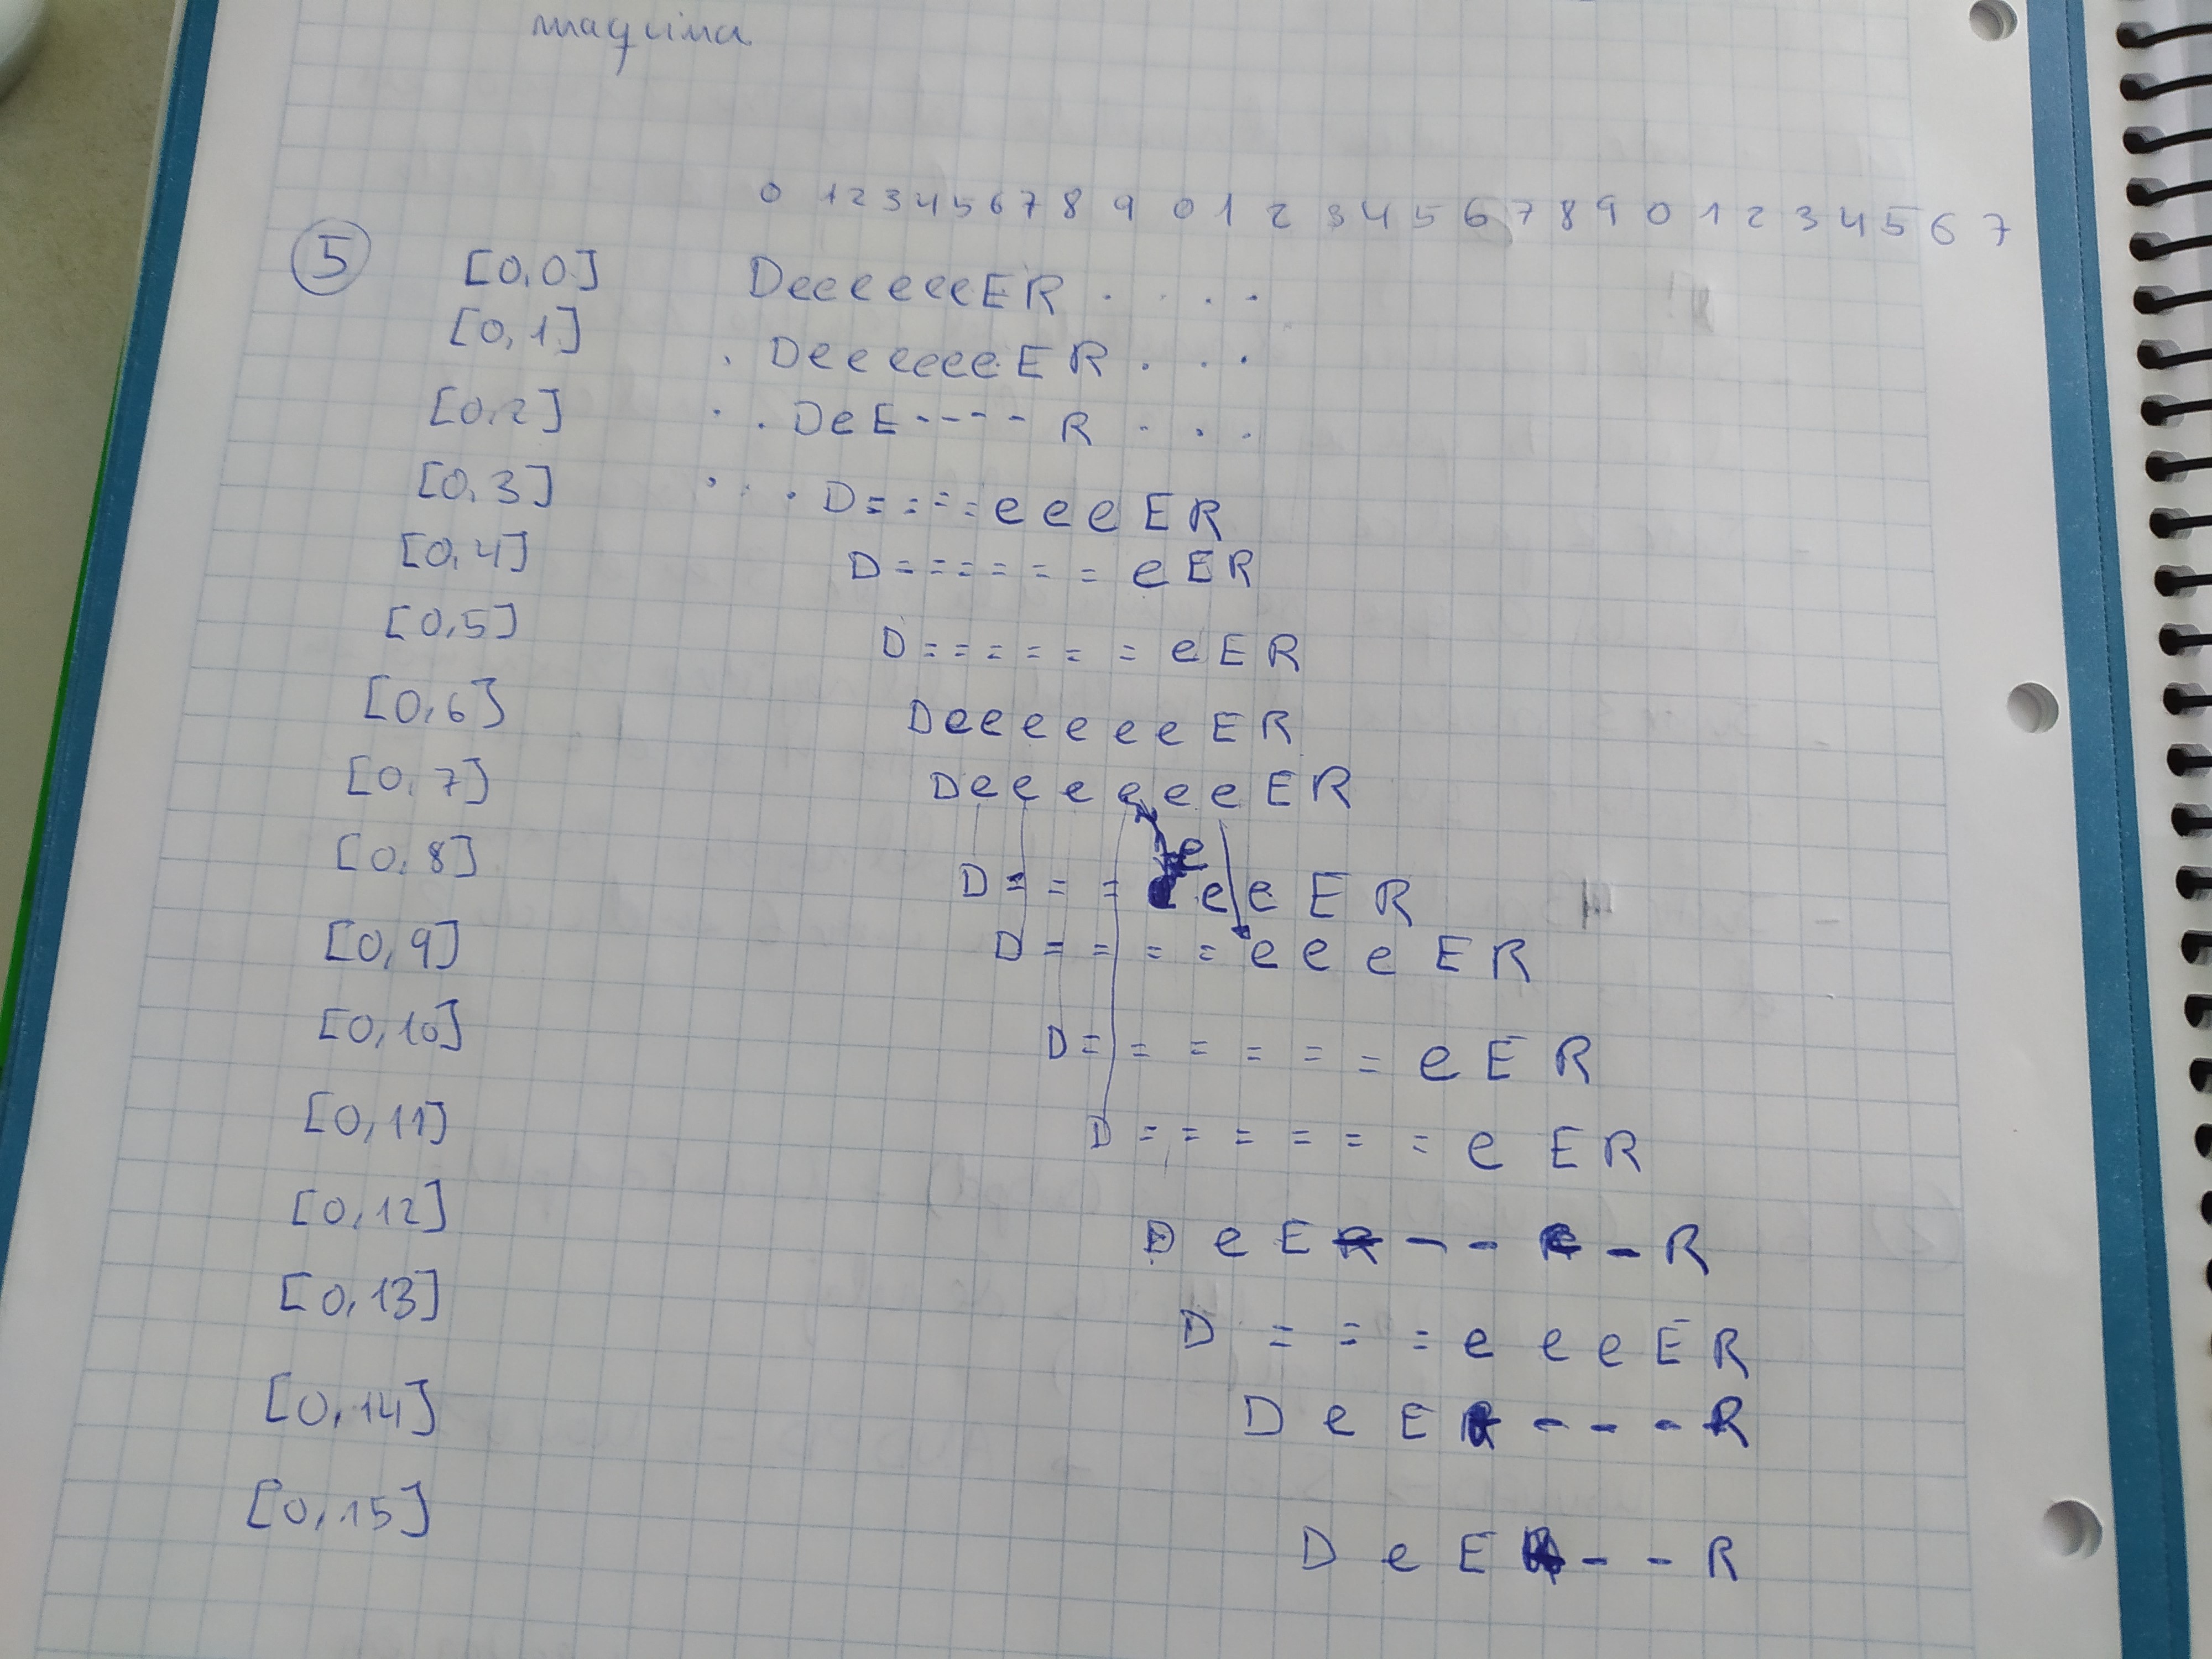 maquina
0 1 2 3 4 5 6 7 8 9 0 1 2 3 4 5 6 7 8 9 0 1 2 3 4 5 6 7
5 [0,0] DeeeeeeER . . . .
[0,1] . DeeeeeeER . . .
[0,2] . . DeE----R . . .
[0,3] . . . D====eeeER
[0,4] D======eER
[0,5] D======eER
[0,6] DeeeeeeER
[0,7] DeeeeeeER
e
[0,8] D===eeER
[0,9] D====eeeER
[0,10] D======eER
[0,11] D======eER
[0,12] DeE---R
[0,13] D===eeeER
[0,14] DeE---R
[0,15] DeE--R